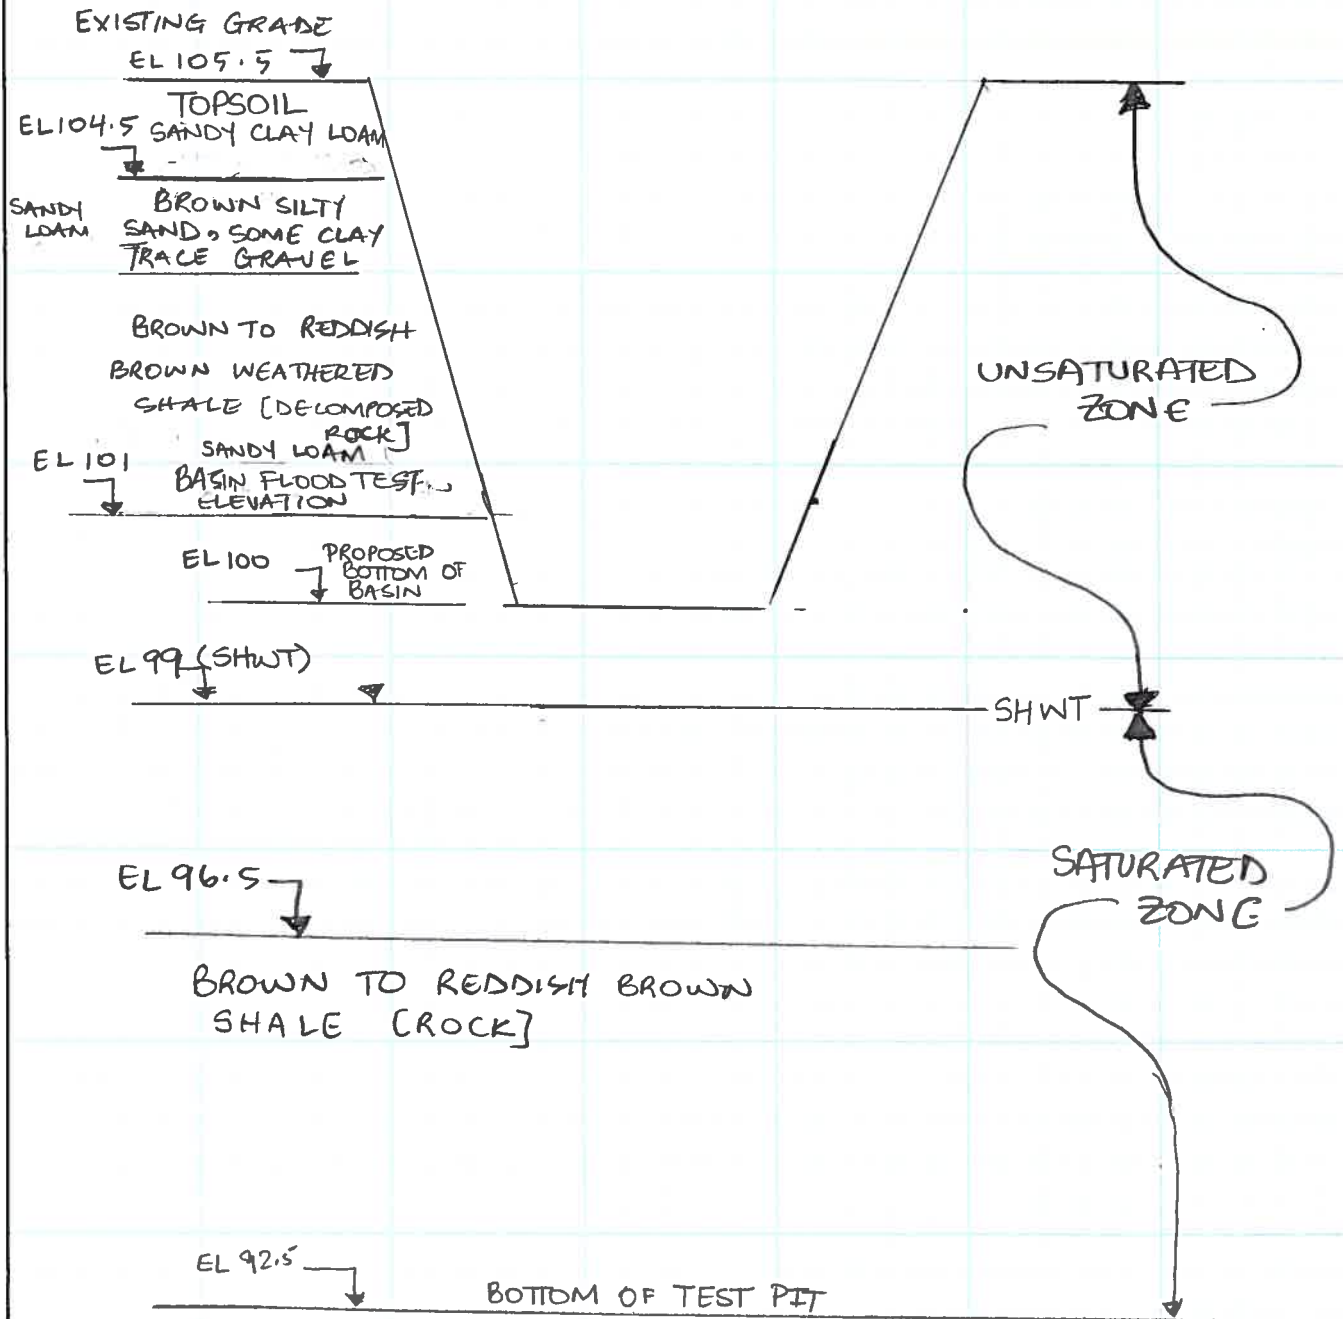 EXISTING GRADE
EL 105.5
TOPSOIL
SANDY CLAY LOAM
EL104.5
SANDY
LOAM
BROWN SILTY
SAND, SOME CLAY
TRACE GRAVEL
BROWN TO REDDISH
BROWN WEATHERED
SHALE [DECOMPOSED
ROCK]
SANDY LOAM
EL 101
BASIN FLOOD TEST
ELEVATION
EL 100
PROPOSED
BOTTOM OF
BASIN
UNSATURATED
ZONE
EL 99 (SHWT)
SHWT
EL 96.5
SATURATED
ZONE
BROWN TO REDDISH BROWN
SHALE [ROCK]
EL 92.5
BOTTOM OF TEST PIT